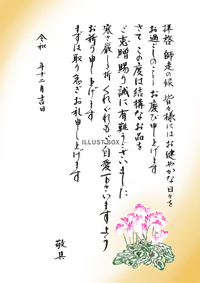 拝啓 師走の候 皆々様にはお健やかな日々を
お過ごしのこととお慶び申し上げます
さて この度は結構なお品を
ご恵贈賜り誠に有難うございました
寒さ厳しき折 くれぐれもご自愛下さいますよう
お祈り申し上げます
まずは取り急ぎお礼申し上げます
敬具
令和 年十二月吉日
ILLUST BOX